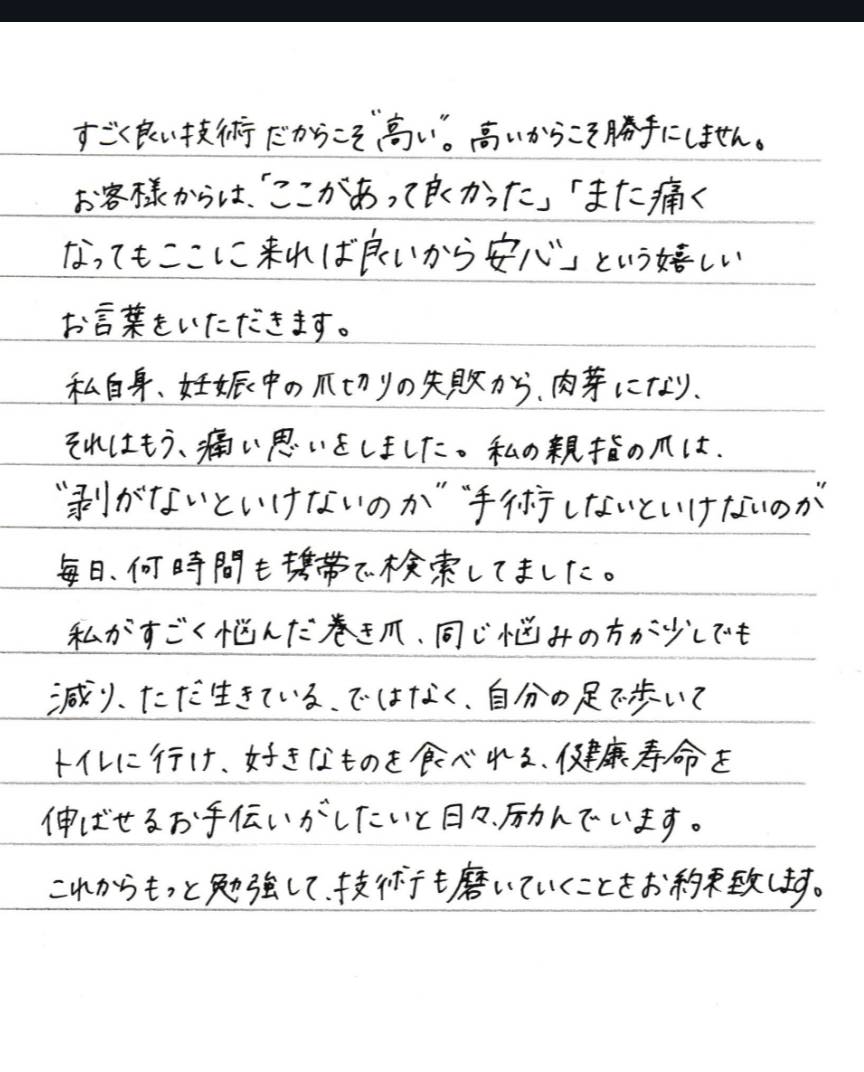 すごく良い技術だからこそ"高い"。高いからこそ勝手にしません。
お客様からは、「ここがあって良かった」「また痛く
なってもここに来れば良いから安心」という嬉しい
お言葉をいただきます。
私自身、妊娠中の爪切りの失敗から、肉芽になり、
それはもう、痛い思いをしました。私の親指の爪は、
"剥がないといけないのか""手術しないといけないのか"
毎日、何時間も携帯で検索してました。
私がすごく悩んだ巻き爪、同じ悩みの方が少しでも
減り、ただ生きている、ではなく、自分の足で歩いて
トイレに行け、好きなものを食べれる、健康寿命を
伸ばせるお手伝いがしたいと日々、励んでいます。
これからもっと勉強して、技術も磨いていくことをお約束致します。